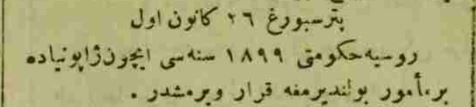 پترسبورغ ٢٦ كانون اول
روسیه‌حكومتی ١٨٩٩ سنه‌سی ایچون‌ژاپونیاده
بر‌مأمور بولندیرمغه قرار ویرمشدر .